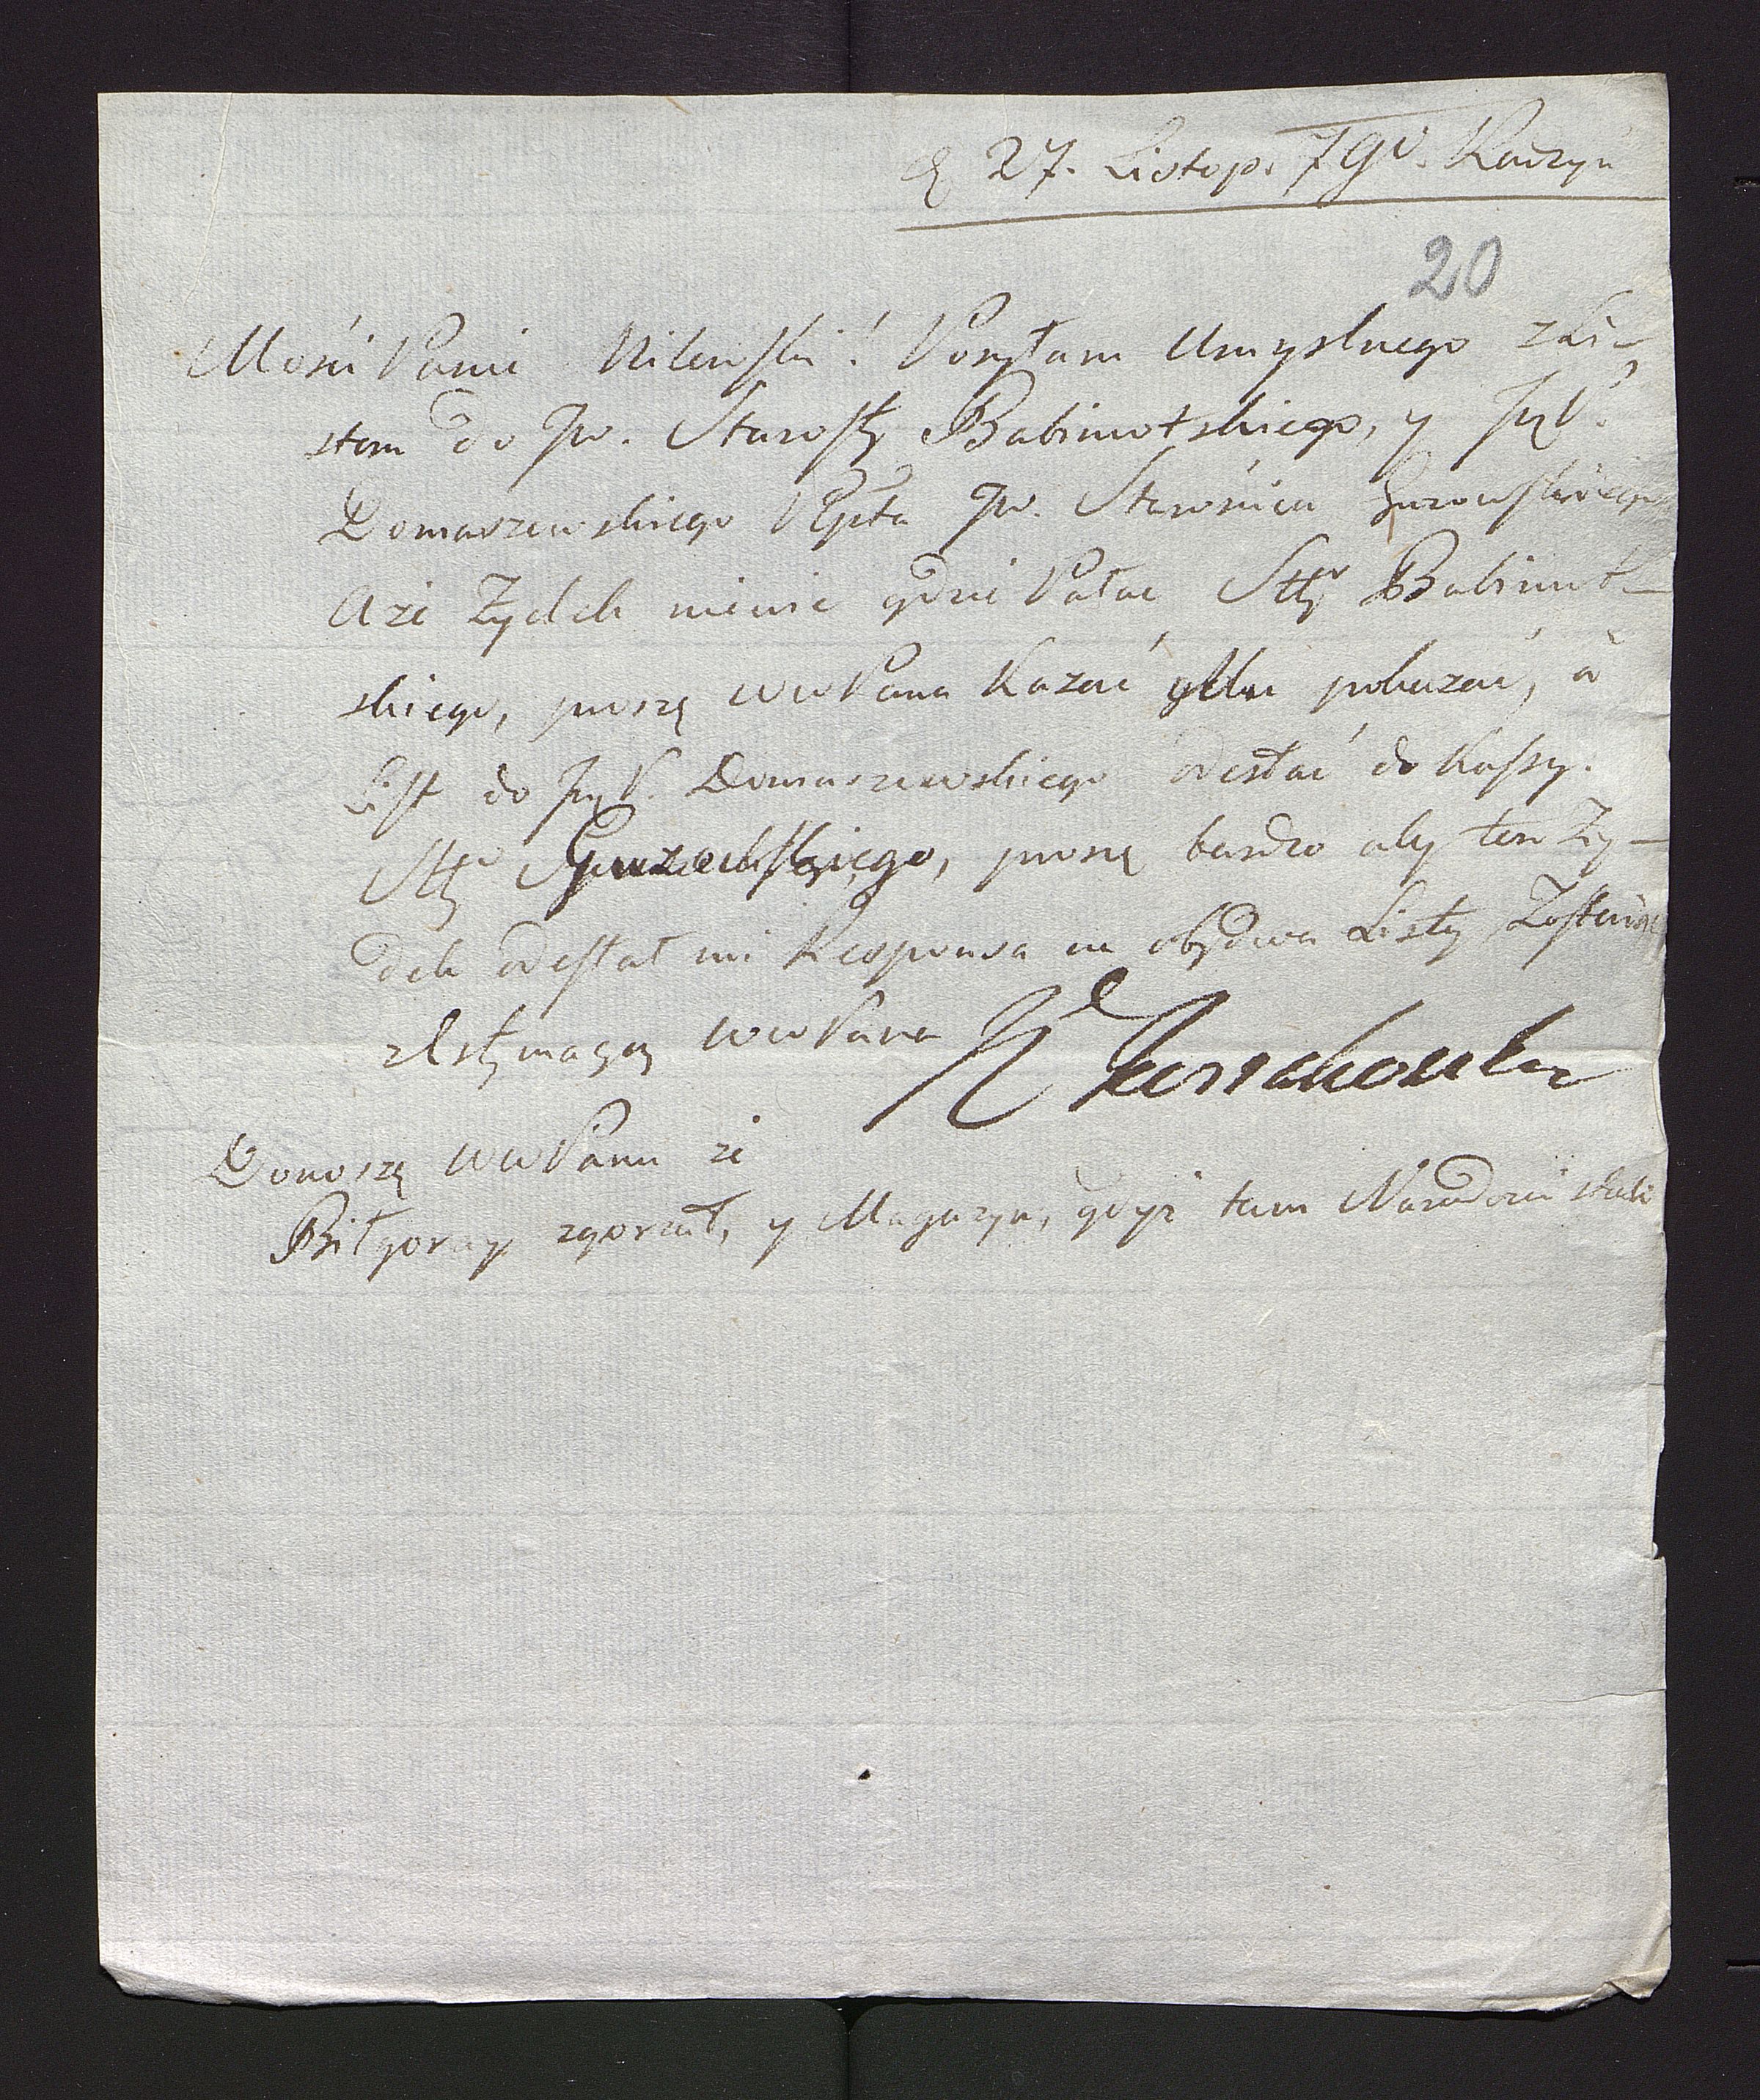 d 27. Listop. 790. Raczyń
20
Mości Panie Milewski! Posyłam Umyslnego z Li-
stem do Jw. Starosty Babimotskiego, y JPł.
Domaszewskiego Jw. Starościca Gurowskiego
A że Zydek niewie gdzie Pałac Stty Babimot-
skiego, proszę WwPana Kazać pokazać, à
List do Domaszewskiego odesłać do Kassy.
Stty Gurowskiego, proszę bardzo aby ten Zy-
dek odesłał mi Responsa na obydwa Listy Zostaię
z Estymacyą WwPana

Donoszę WwPanu że
Biłgoray zgorzał, y Magazyn, gdyż tam Narodowi stali